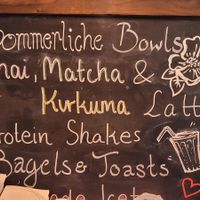 Sommerliche Bowls
hai, Matcha &
Kurkuma Latt
rotein Shakes
Bagels & Toasts